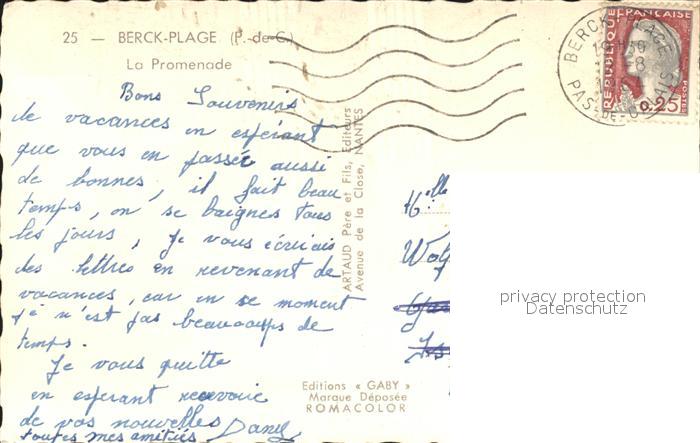 25 — BERCK-PLAGE (P.-de-C.)
La Promenade
Bons Souvenirs
de vacances en espérant
que vous en passée aussi
de bonnes, il fait beau
temps, on se baignes tous
les jours, Je vous écrirais
des lettres en revenant de
vacances, car en se moment
je n'est pas beaucoups de
temps.
Je vous quitte
en esperant recevoir
de vos nouvelles Dany
toutes mes amitiés
ARTAUD Père et Fils, Editeurs
Avenue de la Close, NANTES
Editions « GABY »
Marque Déposée
ROMACOLOR
BERCK-PLAGE
PAS-DE-CALAIS
REPUBLIQUE FRANÇAISE
0,25
POSTES
Melle
privacy protection
Datenschutz